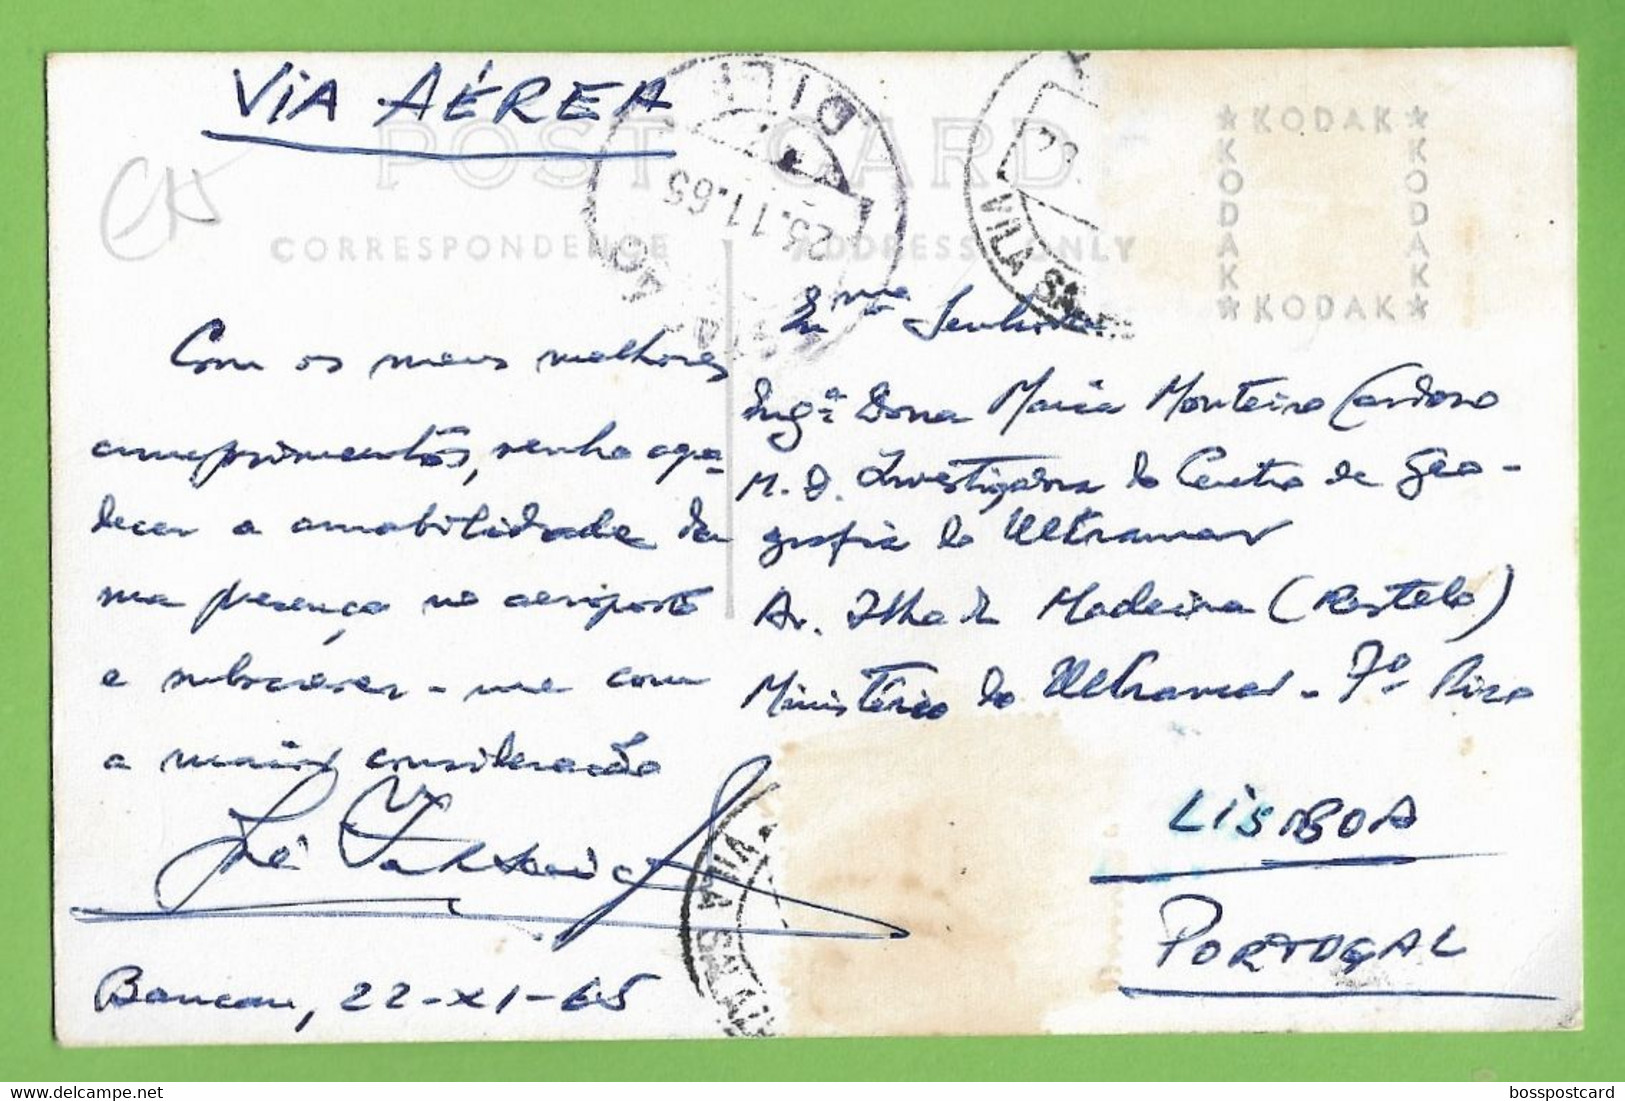 VIA AÉREA
POST CARD
CORRESPONDENCE
ADDRESS ONLY
DILI
25.11.65
VILA SA
★ KODAK ★
KODAK
KODAK
★ KODAK ★
Com os meus melhores
cumprimentos, venho agra-
decer a amabilidade da
sua presença no aeroporto
e subscrever-me com
a maior consideração
José
Baucau, 22-XI-65
Exma Senhora
Engª Dona Maria Monteiro Cardoso
M. D. Investigadora do Centro de Geo-
grafia do Ultramar
Av. Ilha da Madeira (Restelo)
Ministério do Ultramar - 7º Piso
LISBOA
PORTUGAL
VILA SA
bosspostcard